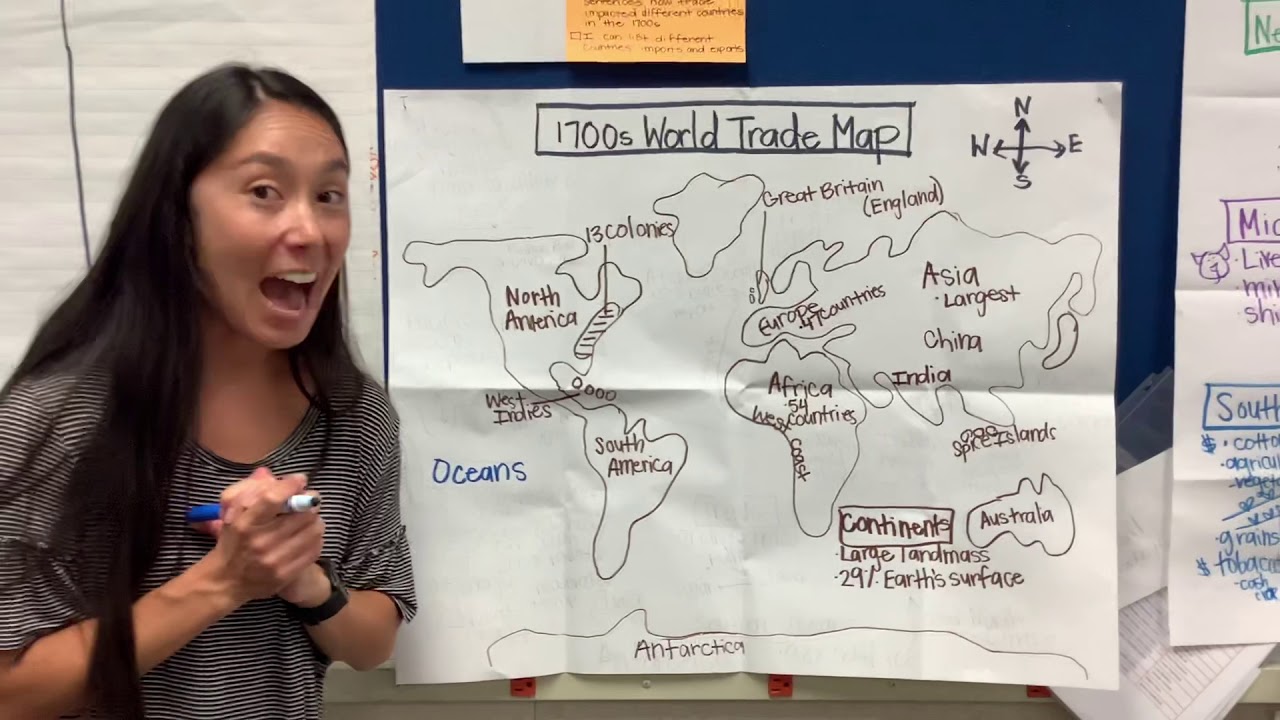 sentences how trade
impacted different countries
in the 1700s
I can list different
countries imports and exports
1700s World Trade Map
N
W E
S
Great Britain
(England)
13 colonies
North
America
Asia
·Largest
China
Europe
47 countries
India
Africa
·54
countries
West
Coast
West
Indies
Spice Islands
South
America
Oceans
Continents
·Large landmass
·29% Earth's surface
Australa
Antarctica
Ne
Mic
·Like
mi
shi
South
$ ·cotto
·agricul
·veget
·grains
$ tobacc
·cash